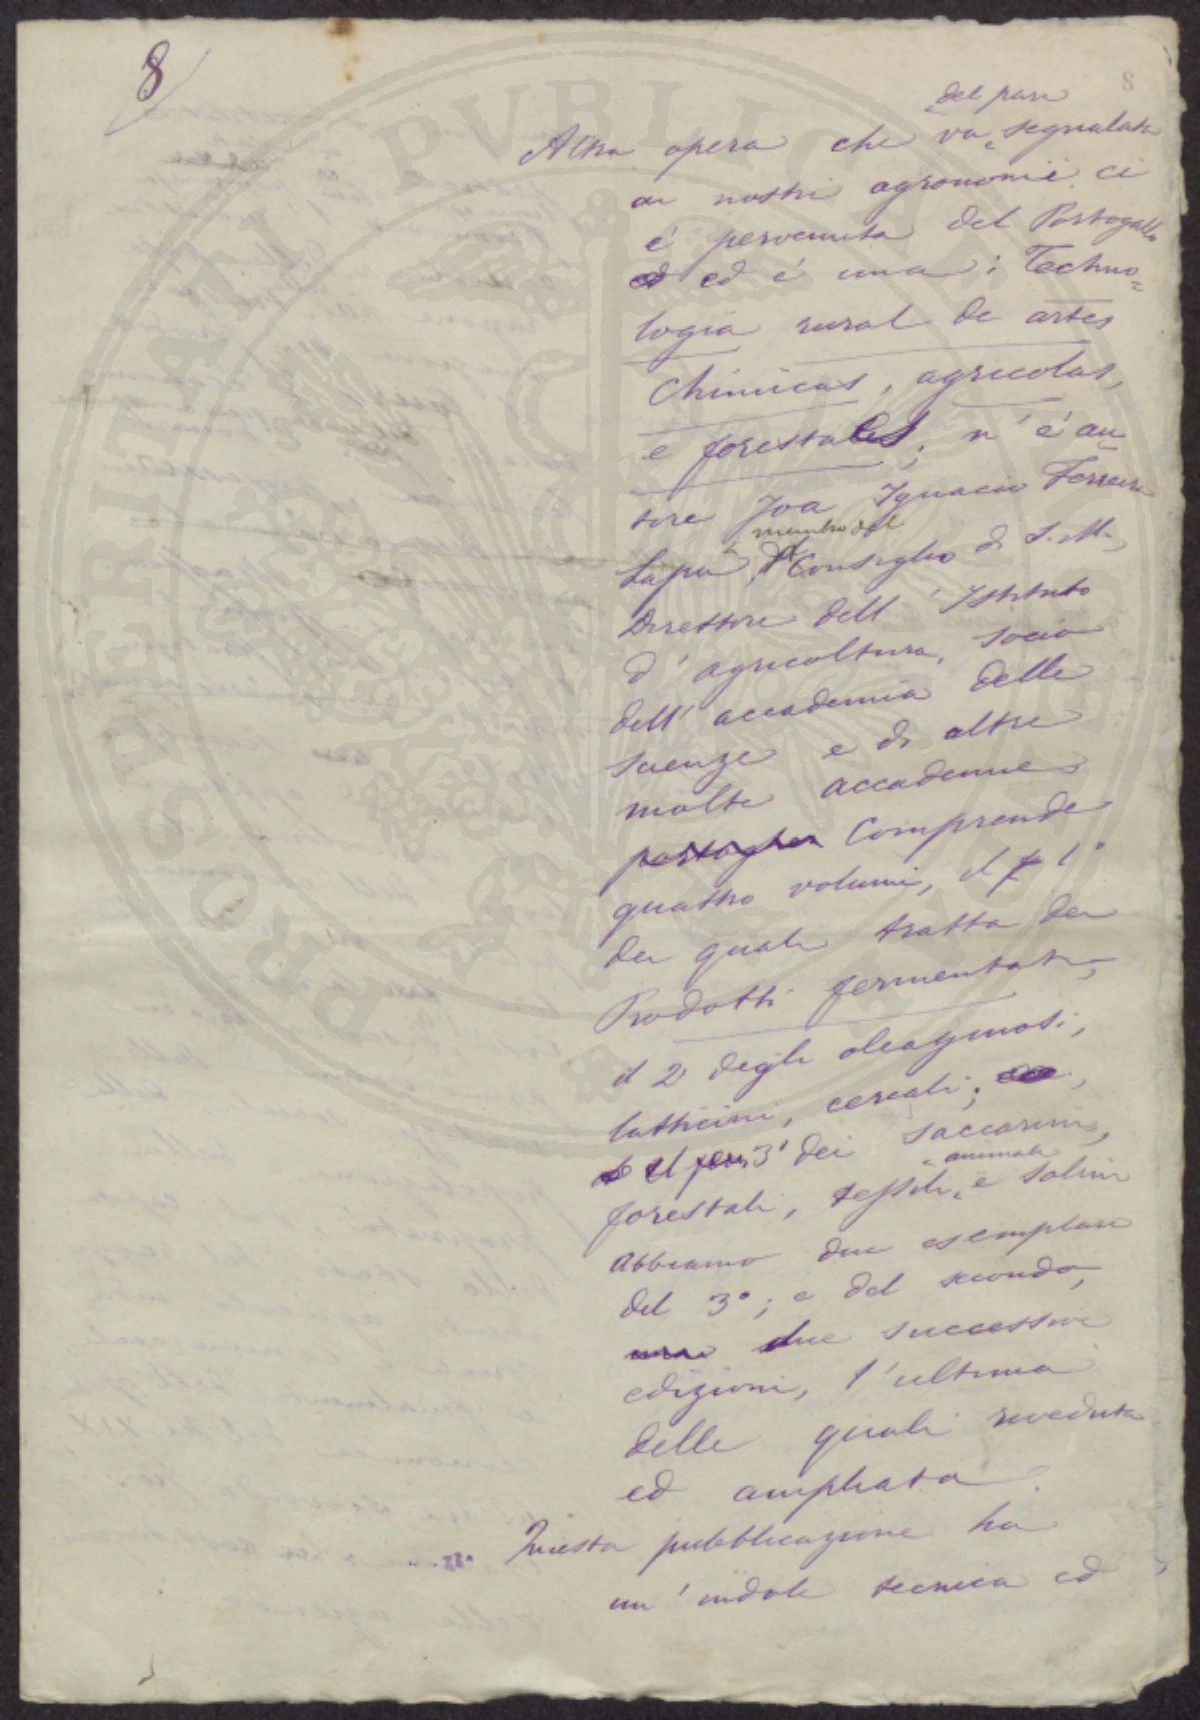 8
8
del pari
Altra opera che va segnalata
ai nostri agronomi è ci
è pervenuta del Portogallo
ed è una: Techno=
logia rural de artes
chimicas, agricolas,
e forestales; n'è au
tore Joa Ignacio Ferreira
membro del
Lapa, Consiglio di S. M.,
Direttore dell'Istituto
d'agricoltura, socio
dell'accademia delle
scienze e di altre
molte accademie
portoghesi Comprende
quattro volumi, il 1°
dei quali tratta dei
Prodotti fermentati,
il 2° degli oleaginosi,
latticini, cereali;
il 3° dei saccarini,
animali
forestali, tessili, e salini
Abbiamo due esemplari
del 3°; e del secondo,
due successive
edizioni, l'ultima
delle quali riveduta
ed ampliata.
Questa pubblicazione ha
un'indole tecnica ed